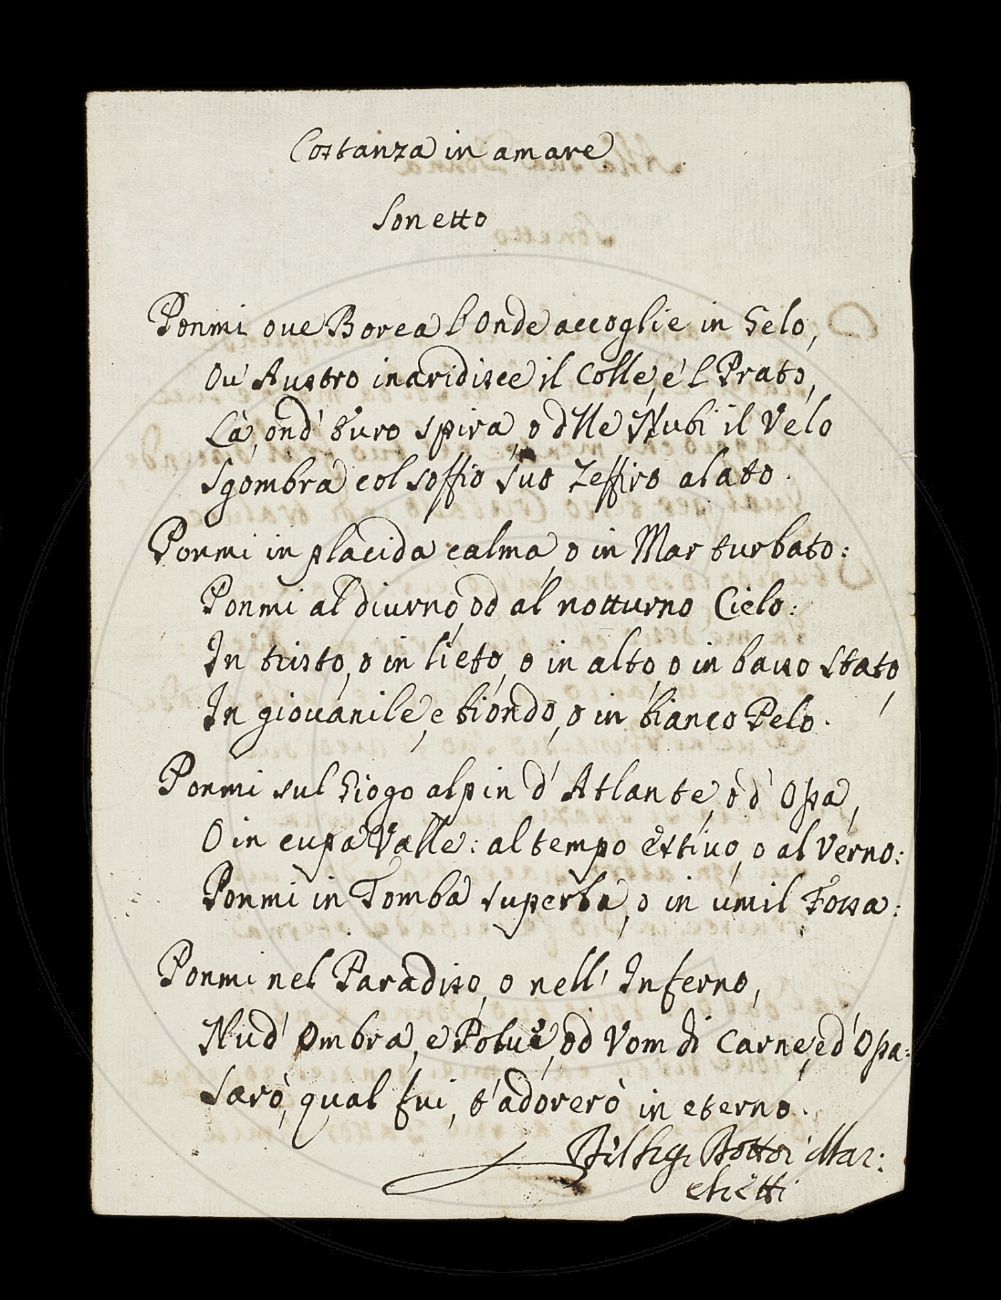 Costanza in amare
Sonetto
Ponmi oue Borea l'onde accoglie in Gelo,
Ou' Austro inaridisce il Colle, e'l Prato,
Là, ond' Euro spira, o dlle Nubi il Velo
Sgombra col soffio suo Zeffiro alato.
Ponmi in placida calma, o in Mar turbato:
Ponmi al diurno, od al notturno Cielo:
In tristo, o in lieto, o in alto, o in basso stato,
In giouanile, e biondo, o in bianco Pelo.
Ponmi sul Giogo alpin d' Atlante, o d' Ossa,
O in cupa Valle: al tempo estiuo, o al Verno:
Ponmi in Tomba superba, o in umil Fossa:
Ponmi nel Paradiso, o nell' Inferno,
Nud' Ombra, e Polue, od Vom di Carne, ed' Ossa:
Sarò, qual fui, t'adorerò in eterno.
Del Sigr Dottor Mar:
chetti